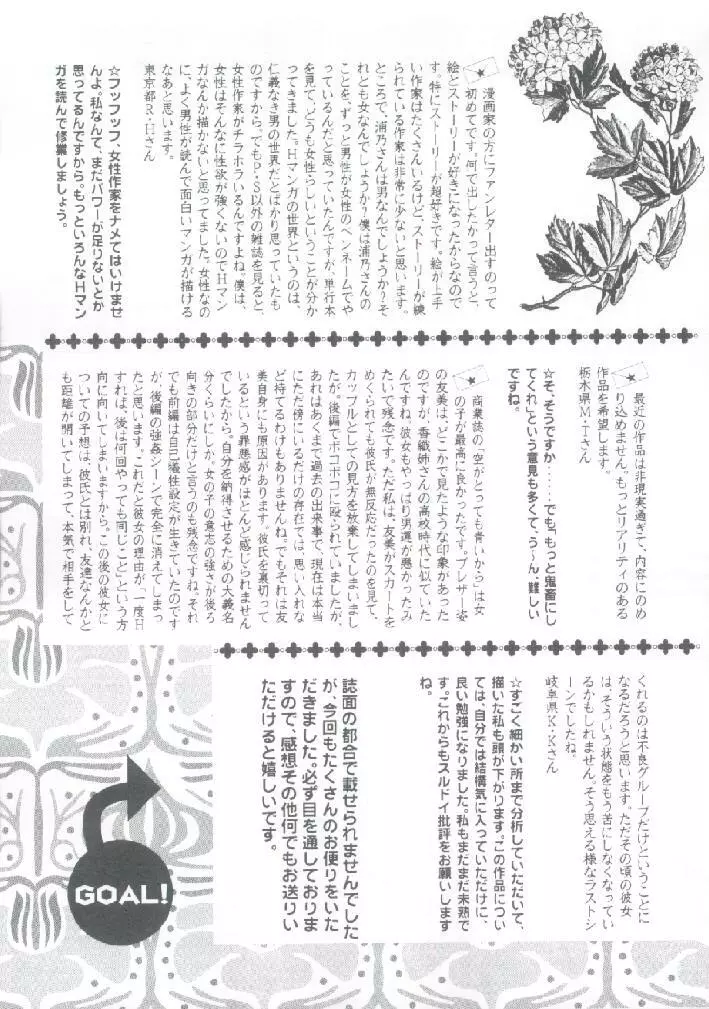 漫画家の方にファンレター出すのって
初めてです。何で出したかって言うと、
絵とストーリーが好きになったからなので
す。特にストーリーが超好きです。絵が上手
い作家はたくさんいるけど、ストーリーが練
られている作家は非常に少ないと思います。
ところで、浦乃さんは男なんでしょうか？そ
れとも女なんでしょうか？僕は浦乃さんの
ことを、ずっと男性が女性のペンネームでや
っているんだと思っていたんですが、単行本
を見て、どうも女性らしいということが分か
ってきました。Hマンガの世界というのは、
仁義なき男の世界だとばかり思っていたも
のですから。でもP・S以外の雑誌を見ると、
女性作家がチラホラいるんですよね。僕は、
女性はそんなに性欲が強くないのでHマン
ガなんか描かないと思ってました。女性なの
に、よく男性が読んで面白いマンガが描ける
なあと思います。
東京都R・Hさん
☆フッフッフ、女性作家をナメてはいけませ
んよ。私なんて、まだパワーが足りないとか
思ってるんですから。もっといろんなHマン
ガを読んで修業しましょう。
最近の作品は非現実過ぎて、内容にのめ
り込めません。もっとリアリティのある
作品を希望します。
栃木県M・Iさん
☆そ、そうですか‥‥‥でも、もっと鬼畜にし
てくれ」という意見も多くて、う〜ん、難しい
ですね。
商業誌の「空がとっても青いから」は女
の子が最高に良かったです。ブレザー姿
の友美は、どこかで見たような印象があった
のですが、香織姉さんの高校時代に似ていた
んですね。彼女もやっぱり男運が悪かったみ
たいで残念です。ただ私は、友美がスカートを
めくられても彼氏が無反応だったのを見て、
カップルとしての見方を放棄してしまいまし
たが。後編でボコボコに殴られていましたが、
あれはあくまで過去の出来事で、現在は本当
にただ傍にいるだけの存在では、思い入れな
ど持てるわけもありませんね。でもそれは友
美自身にも原因があります。彼氏を裏切って
いるという罪悪感がほとんど感じられません
でしたから。自分を納得させるための大義名
分くらいにしか。女の子の意志の強さが後ろ
向きの部分だけと言うのも残念ですね。それ
でも前編は自己犠牲設定が生きていたのです
が、後編の強姦シーンで完全に消えてしまっ
たと思います。これだと彼女の理由が、「一度H
すれば、後は何回やっても同じこと」という方
向に向いてしまいますから。この後の彼女に
ついての予想は、彼氏とは別れ、友達なんかと
も距離が開いてしまって、本気で相手をして
くれるのは不良グループだけということに
なるだろうと思います。ただその頃の彼女
は、そういう状態をもう苦にしなくなってい
るかもしれません。そう思える様なラストシ
ーンでしたね。
岐阜県K・Kさん
☆すごく細かい所まで分析していただいて、
描いた私も頭が下がります。この作品につい
ては、自分では結構気に入っていただけに、
良い勉強になりました。私もまだまだ未熟で
す。これからもスルドイ批評をお願いします
ね。
誌面の都合で載せられませんでした
が、今回もたくさんのお便りをいた
だきました。必ず目を通しておりま
すので、感想その他何でもお送りい
ただけると嬉しいです。
GOAL!